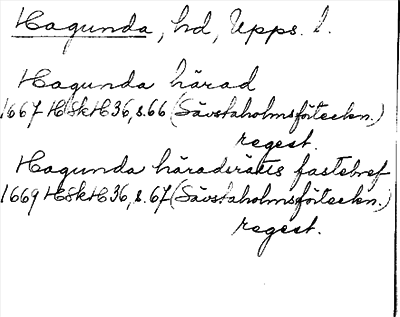 Hagunda, hd, Upps. l.
Hagunda härad
1667 HSkH36, s.66 (Sävstaholmsförteckn.)
regest.
Hagunda häradsrätts fastebref
1669 HSkH36, s.67 (Sävstaholmsförteckn.)
regest.